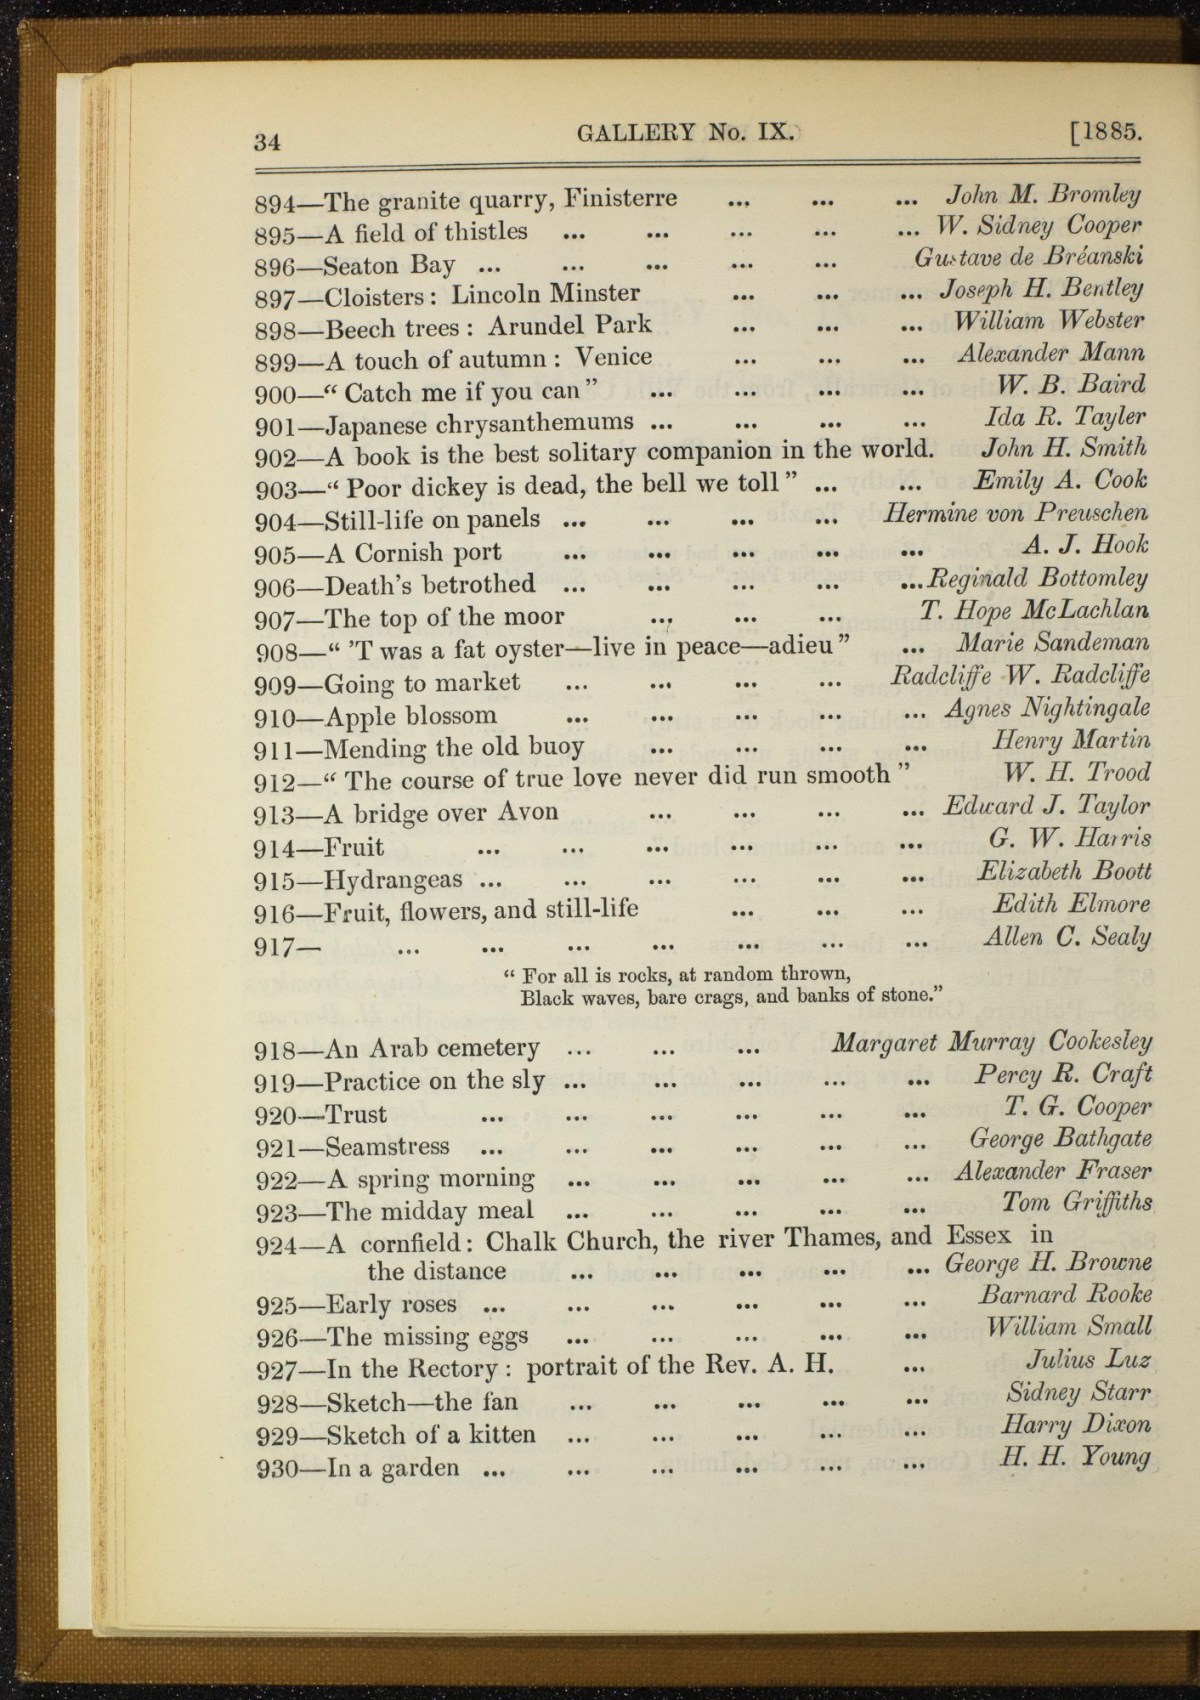 34 GALLERY No. IX. [1885.
894—The granite quarry, Finisterre ... ... ... John M. Bromley
895—A field of thistles ... ... ... ... ... W. Sidney Cooper
896—Seaton Bay ... ... ... ... ... Gustave de Bréanski
897—Cloisters: Lincoln Minster ... ... ... Joseph H. Bentley
898—Beech trees: Arundel Park ... ... ... William Webster
899—A touch of autumn: Venice ... ... ... Alexander Mann
900—“Catch me if you can” ... ... ... ... W. B. Baird
901—Japanese chrysanthemums ... ... ... ... Ida R. Tayler
902—A book is the best solitary companion in the world. John H. Smith
903—“Poor dickey is dead, the bell we toll” ... ... Emily A. Cook
904—Still-life on panels ... ... ... ... Hermine von Preuschen
905—A Cornish port ... ... ... ... ... A. J. Hook
906—Death's betrothed ... ... ... ... ... Reginald Bottomley
907—The top of the moor ... ... ... T. Hope McLachlan
908—“'T was a fat oyster—live in peace—adieu” ... Marie Sandeman
909—Going to market ... ... ... ... Radcliffe W. Radcliffe
910—Apple blossom ... ... ... ... ... Agnes Nightingale
911—Mending the old buoy ... ... ... ... Henry Martin
912—“The course of true love never did run smooth” W. H. Trood
913—A bridge over Avon ... ... ... ... Edward J. Taylor
914—Fruit ... ... ... ... ... ... G. W. Harris
915—Hydrangeas ... ... ... ... ... ... Elizabeth Boott
916—Fruit, flowers, and still-life ... ... ... Edith Elmore
917— ... ... ... ... ... ... ... Allen C. Sealy
“For all is rocks, at random thrown,
Black waves, bare crags, and banks of stone.”
918—An Arab cemetery ... ... ... Margaret Murray Cookesley
919—Practice on the sly ... ... ... ... ... Percy R. Craft
920—Trust ... ... ... ... ... ... T. G. Cooper
921—Seamstress ... ... ... ... ... ... George Bathgate
922—A spring morning ... ... ... ... ... Alexander Fraser
923—The midday meal ... ... ... ... ... Tom Griffiths
924—A cornfield: Chalk Church, the river Thames, and Essex in
the distance ... ... ... ... ... George H. Browne
925—Early roses ... ... ... ... ... ... Barnard Rooke
926—The missing eggs ... ... ... ... ... William Small
927—In the Rectory: portrait of the Rev. A. H. ... Julius Luz
928—Sketch—the fan ... ... ... ... ... Sidney Starr
929—Sketch of a kitten ... ... ... ... ... Harry Dixon
930—In a garden ... ... ... ... ... ... H. H. Young